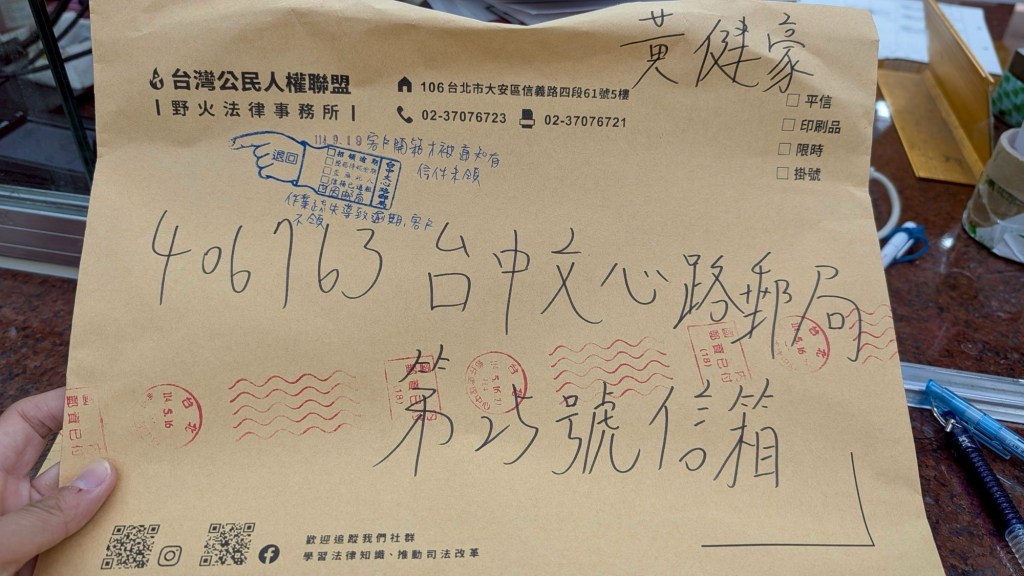 黃健豪
台灣公民人權聯盟
| 野火法律事務所 |
106台北市大安區信義路四段61號5樓
02-37076723 02-37076721
□ 平信
□ 印刷品
□ 限時
□ 掛號
退回
客戶開箱才被通知有
信件未領
作業疏失導致逾期,客戶
不領
406763 台中文心路郵局
第25號信箱
台北
114.5.16
郵資已付
歡迎追蹤我們社群
學習法律知識、推動司法改革